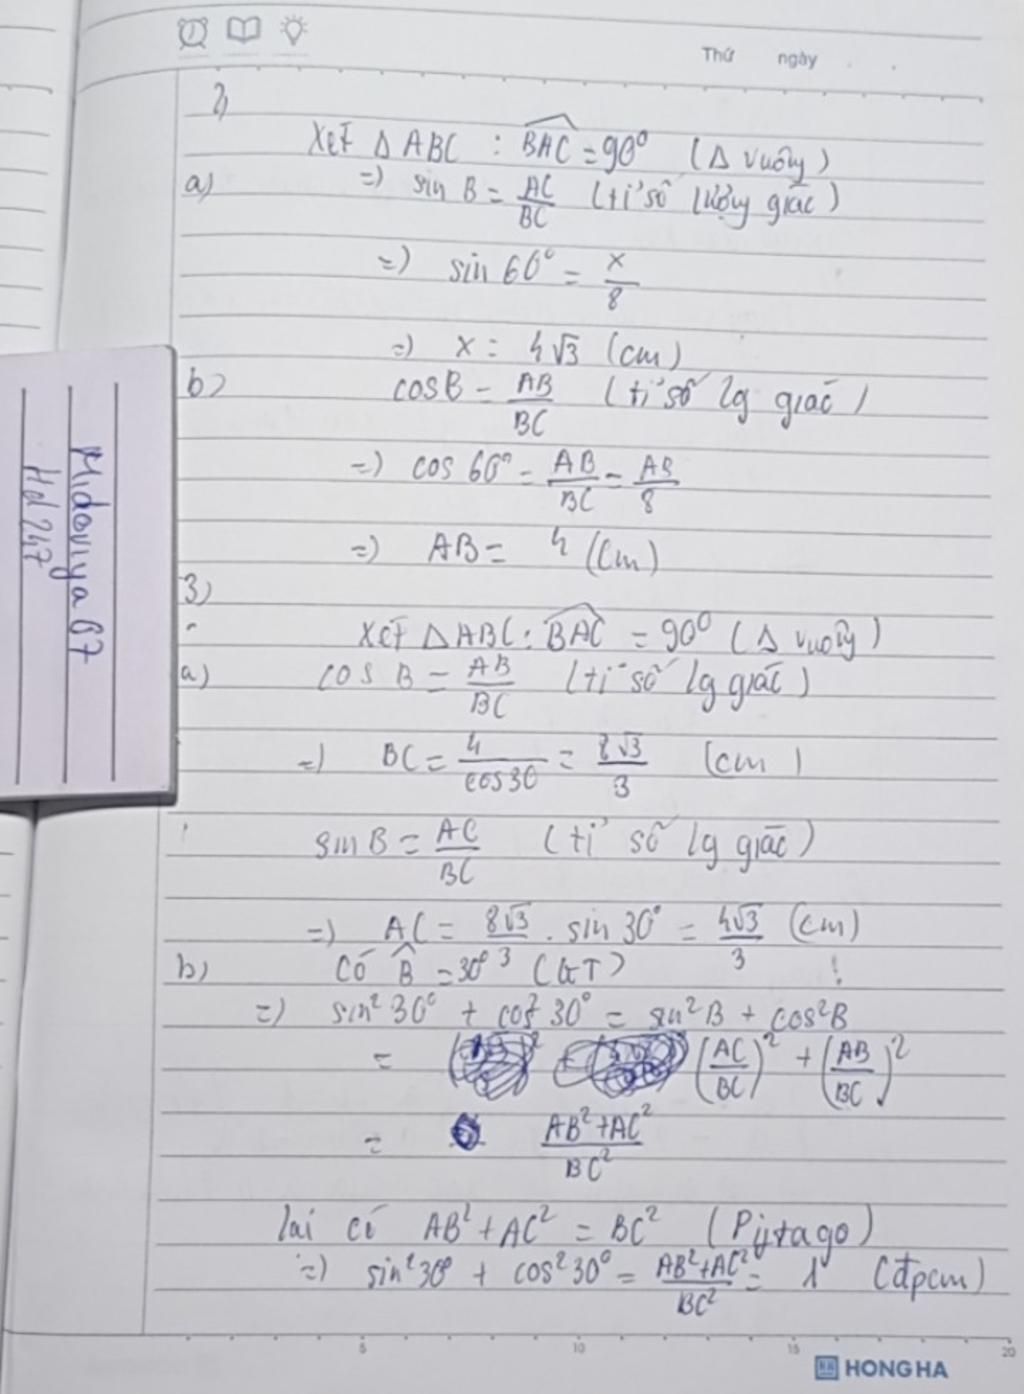 Thứ ngày
2)
Xét Δ ABC : \widehat{BAC} = 90° (Δ vuông)
a) => sin B = AC/BC (tỉ số lượng giác)
=> sin 60° = x/8
=> x = 4√3 (cm)
b) cosB = AB/BC (tỉ số lg giác)
=> cos 60° = AB/BC = AB/8
=> AB = 4 (cm)
3)
Xét ΔABC : \widehat{BAC} = 90° (Δ vuông)
a) cos B = AB/BC (tỉ số lg giác)
=> BC = 4/cos30 = 8√3/3 (cm)
sin B = AC/BC (tỉ số lg giác)
=> AC = 8√3/3 . sin 30° = 4√3/3 (cm)
b) Có \widehat{B} = 30° (GT)
=> sin² 30° + cos² 30° = sin²B + cos²B
= (AC/BC)² + (AB/BC)²
= (AB² + AC²)/BC²
lại có AB² + AC² = BC² (Pytago)
=> sin² 30° + cos² 30° = (AB² + AC²)/BC² = 1 (đpcm)
Midoriya 07
Hd 247
5 10 15 20
HONG HA